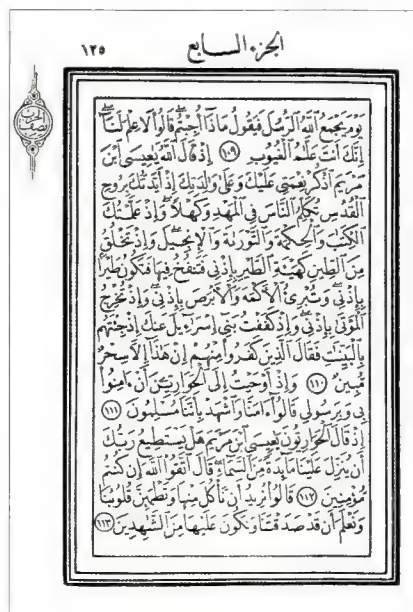 الجزء السابع ١٢٥
نصف الحزب
يَوْمَ يَجْمَعُ اللَّهُ الرُّسُلَ فَيَقُولُ مَاذَا أُجِبْتُمْ قَالُوا لَا عِلْمَ لَنَا
إِنَّكَ أَنْتَ عَلَّامُ الْغُيُوبِ ١٠٩ إِذْ قَالَ اللَّهُ يَاعِيسَى ابْنَ
مَرْيَمَ اذْكُرْ نِعْمَتِي عَلَيْكَ وَعَلَى وَالِدَتِكَ إِذْ أَيَّدتُّكَ بِرُوحِ
الْقُدُسِ تُكَلِّمُ النَّاسَ فِي الْمَهْدِ وَكَهْلًا وَإِذْ عَلَّمْتُكَ
الْكِتَابَ وَالْحِكْمَةَ وَالتَّوْرَاةَ وَالْإِنجِيلَ وَإِذْ تَخْلُقُ
مِنَ الطِّينِ كَهَيْئَةِ الطَّيْرِ بِإِذْنِي فَتَنفُخُ فِيهَا فَتَكُونُ طَيْرًا
بِإِذْنِي وَتُبْرِئُ الْأَكْمَهَ وَالْأَبْرَصَ بِإِذْنِي وَإِذْ تُخْرِجُ
الْمَوْتَى بِإِذْنِي وَإِذْ كَفَفْتُ بَنِي إِسْرَاءِيلَ عَنكَ إِذْ جِئْتَهُم
بِالْبَيِّنَاتِ فَقَالَ الَّذِينَ كَفَرُوا مِنْهُمْ إِنْ هَٰذَا إِلَّا سِحْرٌ
مُّبِينٌ ١١٠ وَإِذْ أَوْحَيْتُ إِلَى الْحَوَارِيِّينَ أَنْ ءَامِنُوا
بِي وَبِرَسُولِي قَالُوا ءَامَنَّا وَاشْهَدْ بِأَنَّنَا مُسْلِمُونَ ١١١
إِذْ قَالَ الْحَوَارِيُّونَ يَاعِيسَى ابْنَ مَرْيَمَ هَلْ يَسْتَطِيعُ رَبُّكَ
أَن يُنَزِّلَ عَلَيْنَا مَائِدَةً مِّنَ السَّمَاءِ قَالَ اتَّقُوا اللَّهَ إِن كُنتُم
مُّؤْمِنِينَ ١١٢ قَالُوا نُرِيدُ أَن نَّأْكُلَ مِنْهَا وَتَطْمَئِنَّ قُلُوبُنَا
وَنَعْلَمَ أَن قَدْ صَدَقْتَنَا وَنَكُونَ عَلَيْهَا مِنَ الشَّاهِدِينَ ١١٣